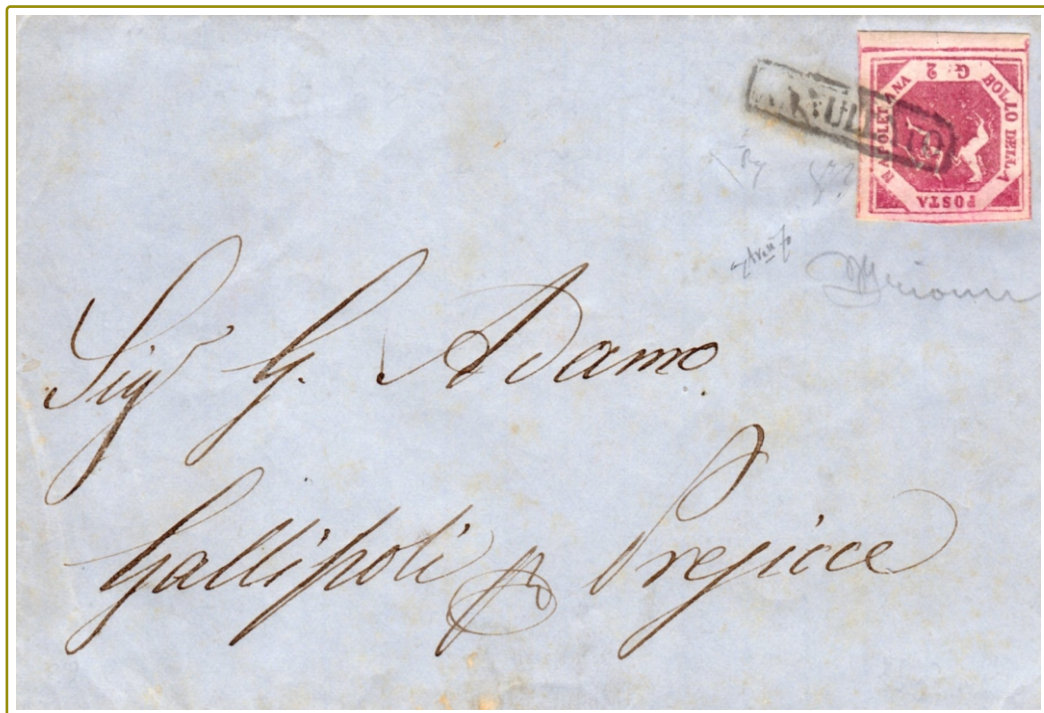 BOLLO DELLA
POSTA
NAPOLETANA
G. 2
Sigr G. Adamo
Gallipoli pr Presicce